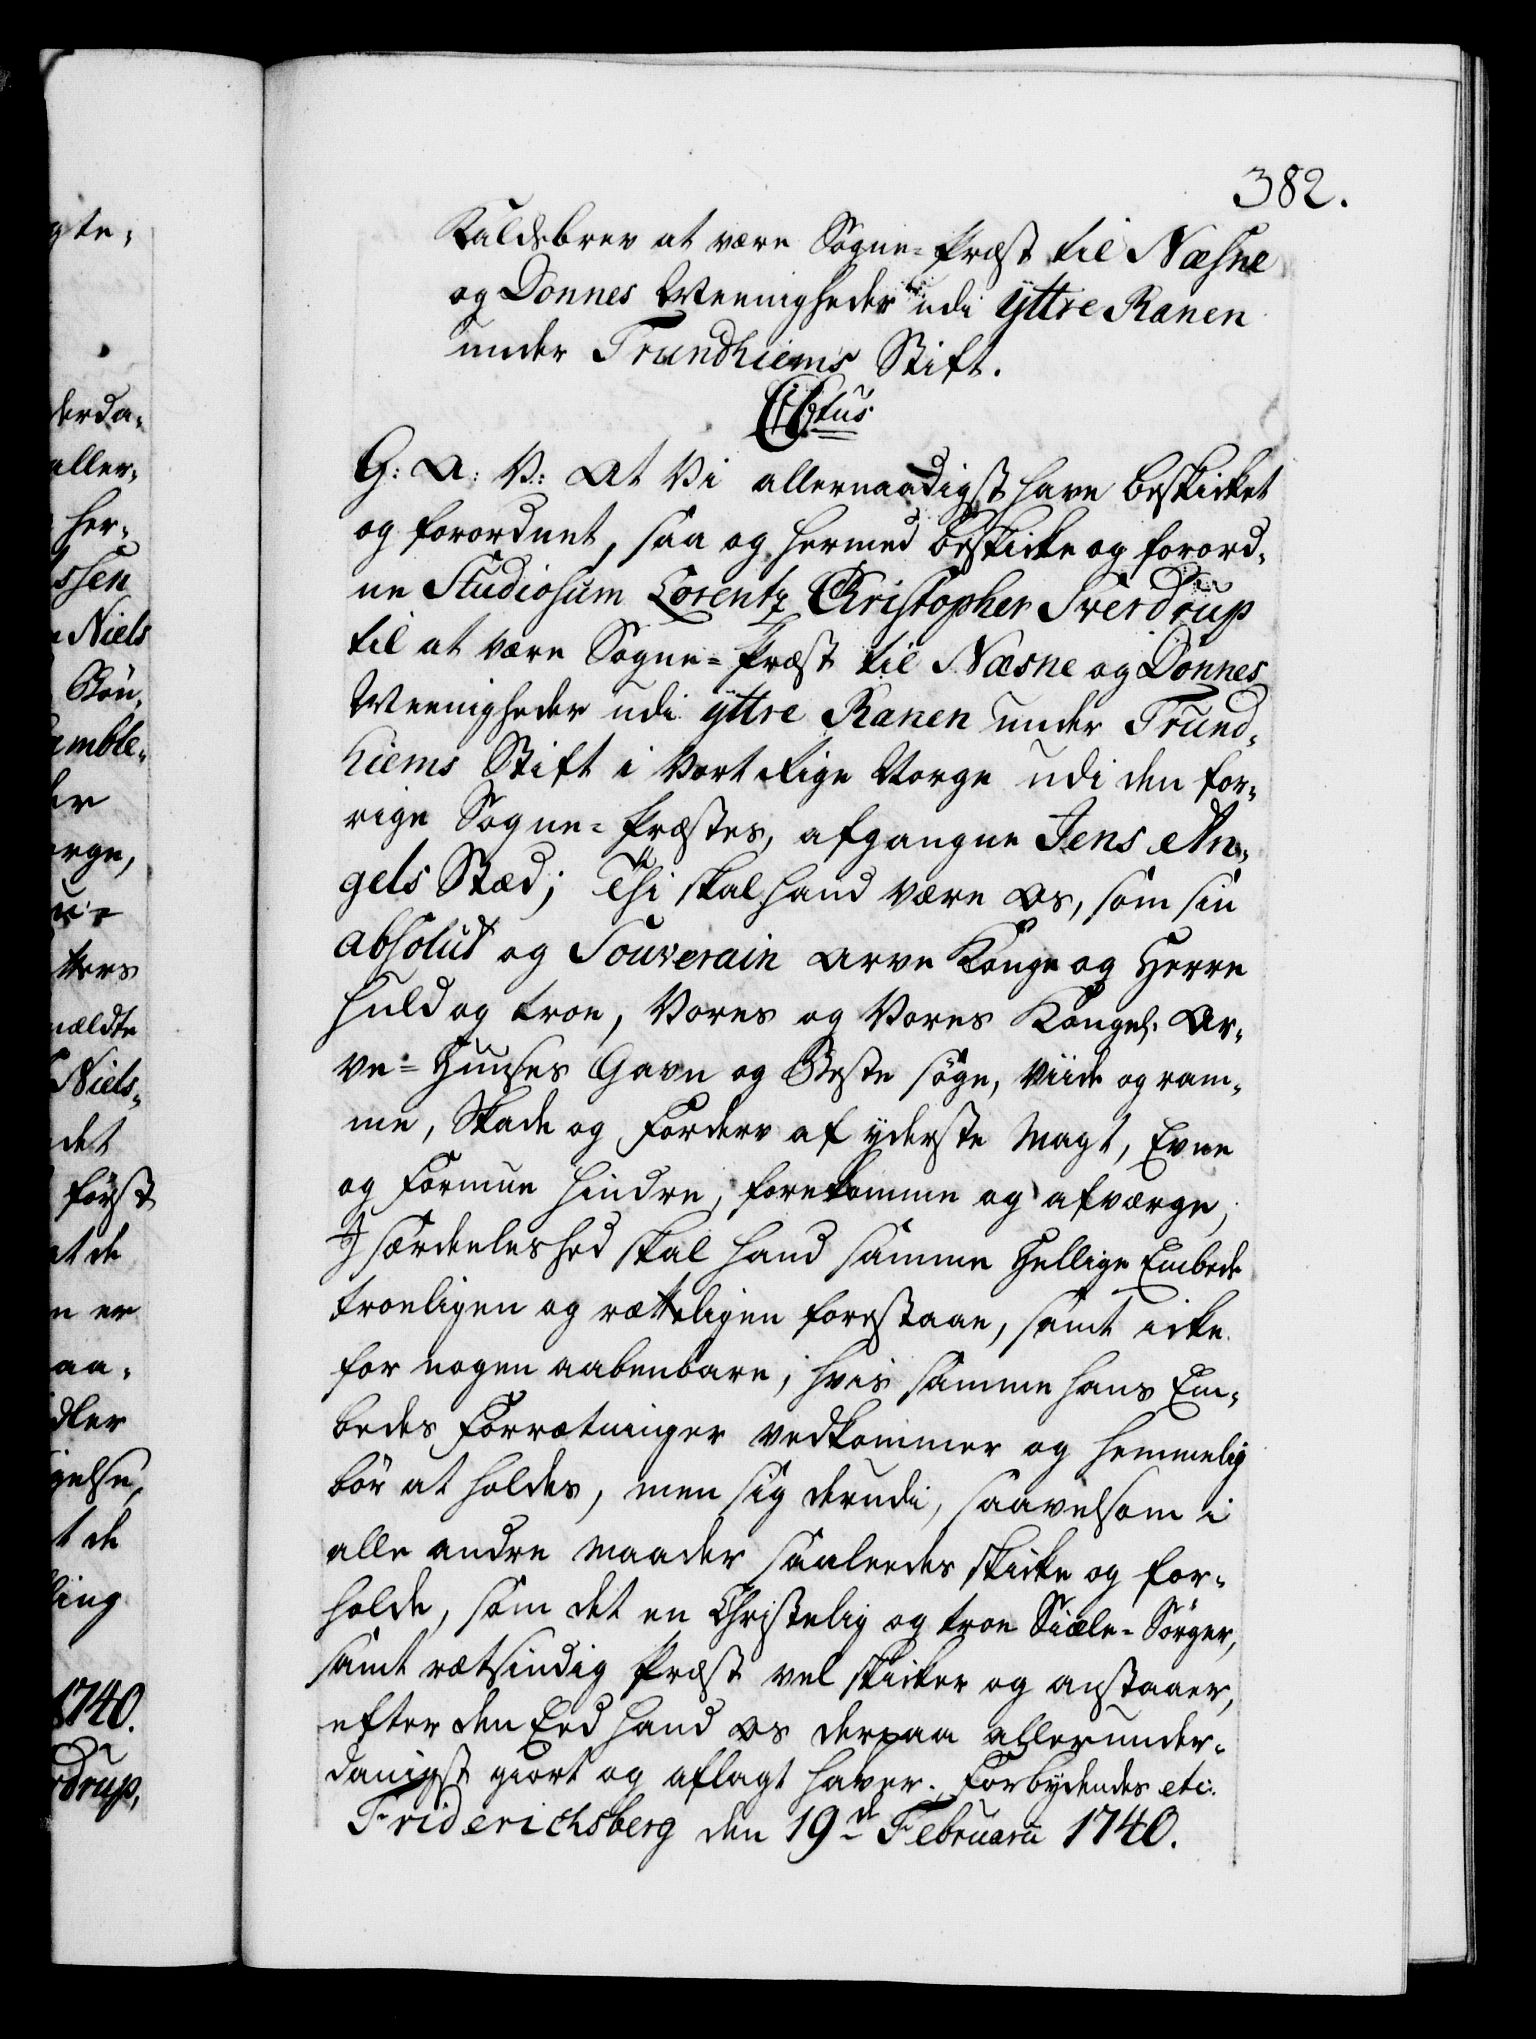 gte,
382.
Kaldsbrev at være Sogne-Præst til Næsne
og Dønnes Meenigheder udi Yttre Ranen
under Trundhiems Stift.
C6tus
G: A: V: At Vi allernaadigst have beskicket
og forordnet, saa og hermed beskicke og forord„
ne Studiosum Lorentz Christopher Sverdrup
til at være Sogne-Præst til Næsne og Dønnes
Meenigheder udi Yttre Ranen under Trund„
hiems Stift i Vort Rige Norge udi den for„
rige Sogne-Præstes, afgangne Jens An„
gels Stæd; Thi skal hand være Os, som sin
absolut og Souverain Arve Konge og Herre
huld og troe, Vores og Vores Kongel. Ar„
ve-Huuses Gavn og Beste søge, Viide og ram„
me, Skade og Forderv af yderste Magt, Evne
og Formue hindre, forekomme og afværge,
I særdeleshed skal hand samme Hellige Embede
troeligen og rætteligen forestaae, samt icke
for nogen aabenbare, hvis samme hans Em„
bedes Forrætninger vedkommer og hemmelig
bør at holdes, men sig derudi, saavelsom i
alle andre Maader saaleedes skicke og for„
holde, som det en Christelig og troe Siæle-Sørger,
samt rætsindig Præst vel skicker og anstaaer,
efter den Eed hand Os derpaa allerunder„
danigst giort og aflagt haver. Forbydendes etc.
Friderichsberg den 19de Februarii 1740.
derda„
aller„
her„
ssen
Niels
amble„
er
orge,
ters
mældte
Niels„
det
først
at de
n er
aa„
dler
gelse,
t de
ling
1740.
rdrup,